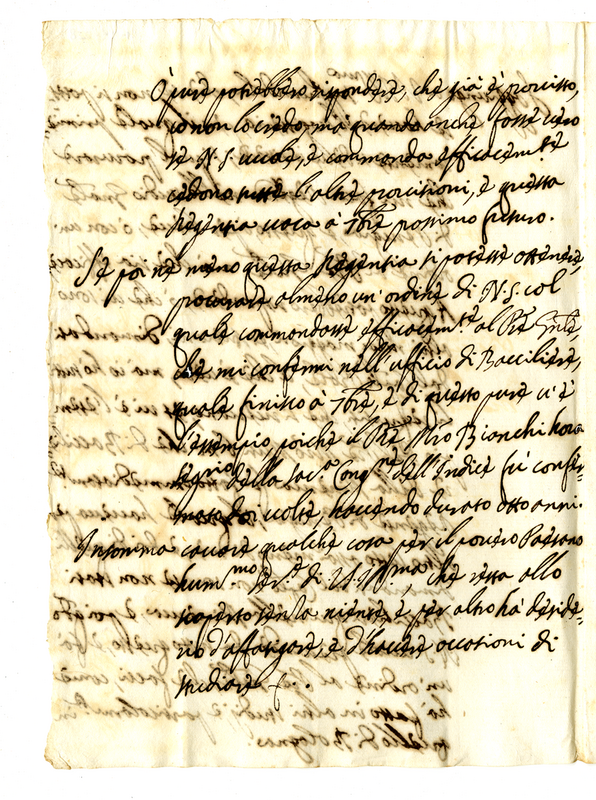 O pure potrebbero rispondere, che già è provisto,
io non lo credo, mà quando anche fosse vero
se N. S. vuole, e commanda efficacem.te
cedono tutte l'altre provisioni, e questa
Regentia vaca à 7bre prossimo futuro.
Se poi nè meno questa Regentia si potesse ottenere,
procurare almeno un'ordine di N. S. col
quale commandasse efficacem.te al Pre Gnle,
che mi confermi nell'ufficio di Bacciliere,
quale finisco à 7bre, e di questo pure vi è
l'essempio poiche il Pre Mro Bianchi hora
Seg.rio della Sac.a Cong.ne dell'Indice fù confer-
mato due volte, havendo durato otto anni.
Insomma cavare qualche cosa per il povero Paesano
hum.mo ser.e di V. S. Ill.ma, che resta allo
scoperto senza niente, e per altro hà deside-
rio d'affatigare, e d'havere occasioni di
studiare